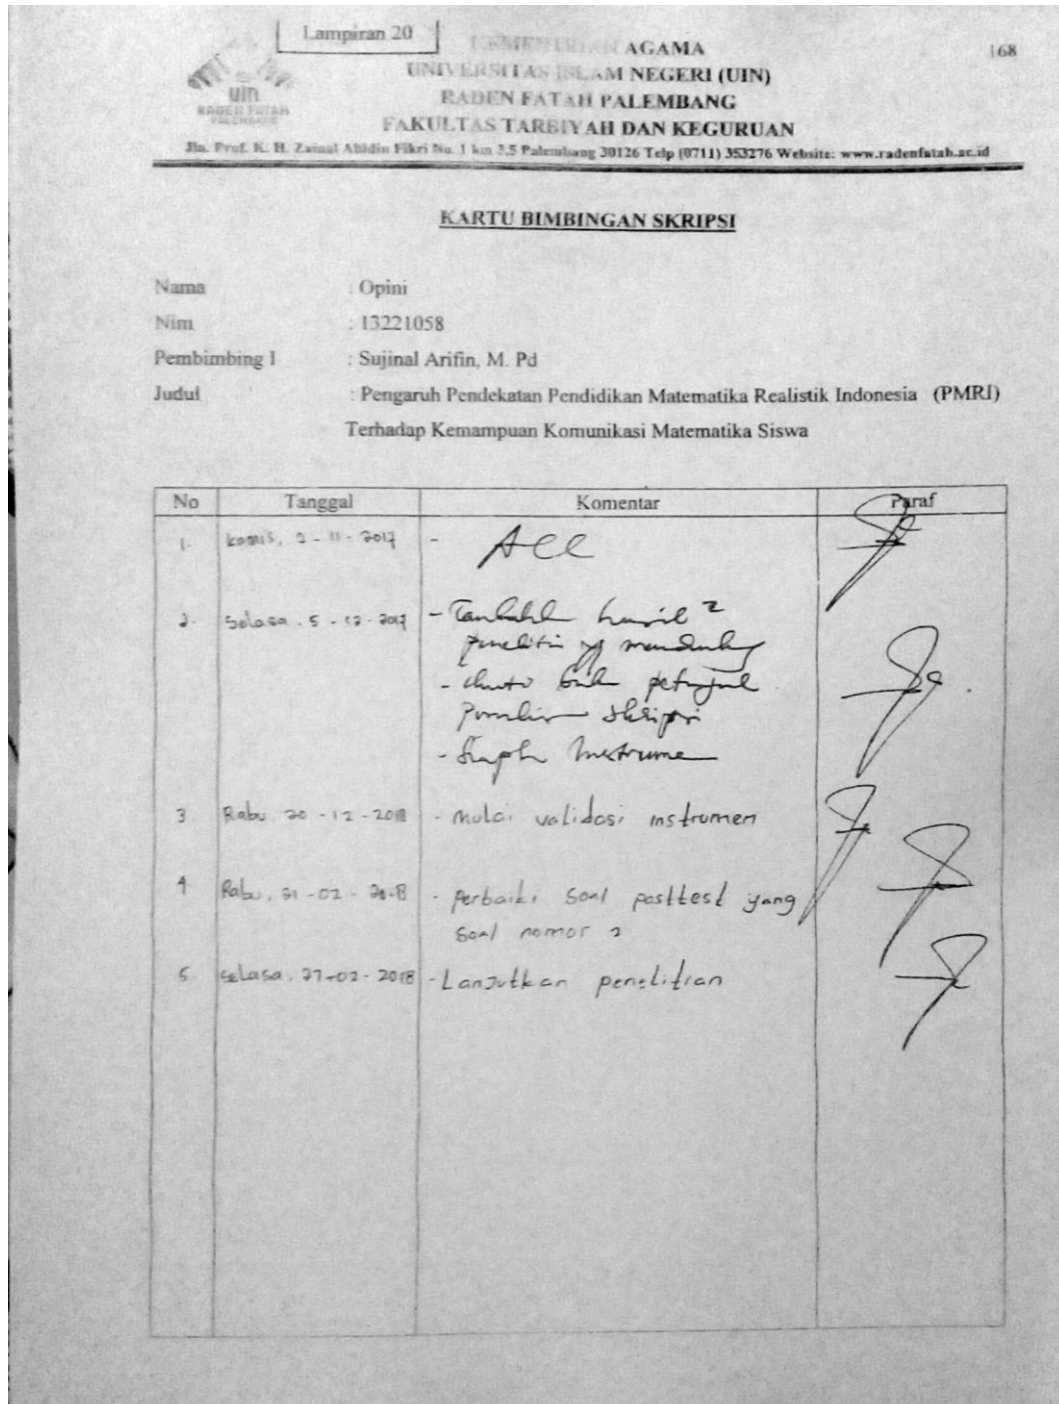 Lampiran 20
168
KEMENTRIAN AGAMA
UNIVERSITAS ISLAM NEGERI (UIN)
RADEN FATAH PALEMBANG
FAKULTAS TARBIYAH DAN KEGURUAN
uin
RADEN FATAH
PALEMBANG
Jln. Prof. K. H. Zainal Abidin Fikri No. 1 km 3,5 Palembang 30126 Telp (0711) 353276 Website: www.radenfatah.ac.id
KARTU BIMBINGAN SKRIPSI
Nama : Opini
Nim : 13221058
Pembimbing I : Sujinal Arifin, M. Pd
Judul : Pengaruh Pendekatan Pendidikan Matematika Realistik Indonesia (PMRI)
Terhadap Kemampuan Komunikasi Matematika Siswa
No Tanggal Komentar Paraf
1. kamis, 2 - 11 - 2017 - Acc
2. Selasa. 5 - 12 - 2017 - hasil 2
penelitian yg mendukung
- petunjuk
skripsi
- Instrumen
3 Rabu 20 - 12 - - mulai validasi instrumen
4 Rabu. 21 - 02 - 2018 - Perbaiki Soal posttest yang
Soal nomor 2
5. Selasa. 27-02-2018 - Lanjutkan penelitian